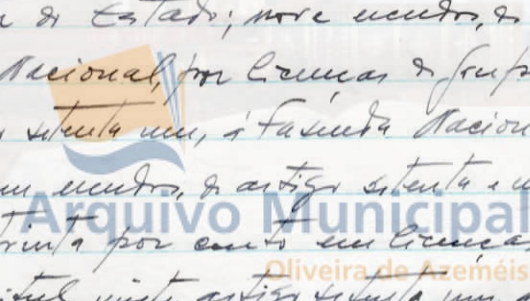 de Estado; nove escudos, de
Nacional, por licenças de grupo
setenta um, à Fazenda Nacion
escudos, do artigo setenta e
Arquivo Municipal
trinta por cento em licenças
Oliveira de Azeméis
artigo setenta um